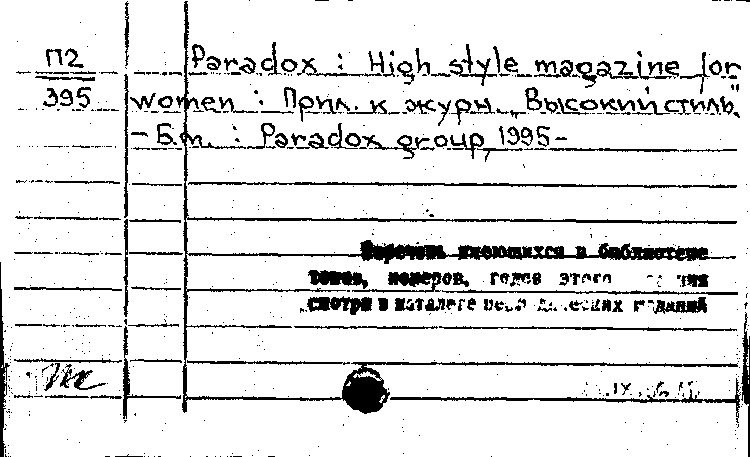 П2
395
Paradox : High style magazine for
women : Прил. к журн. „Высокий стиль".
– Б.м. : Paradox group, 1995–
Перечень имеющихся в библиотеке
томов, номеров, годов этого
смотри в каталоге изданий